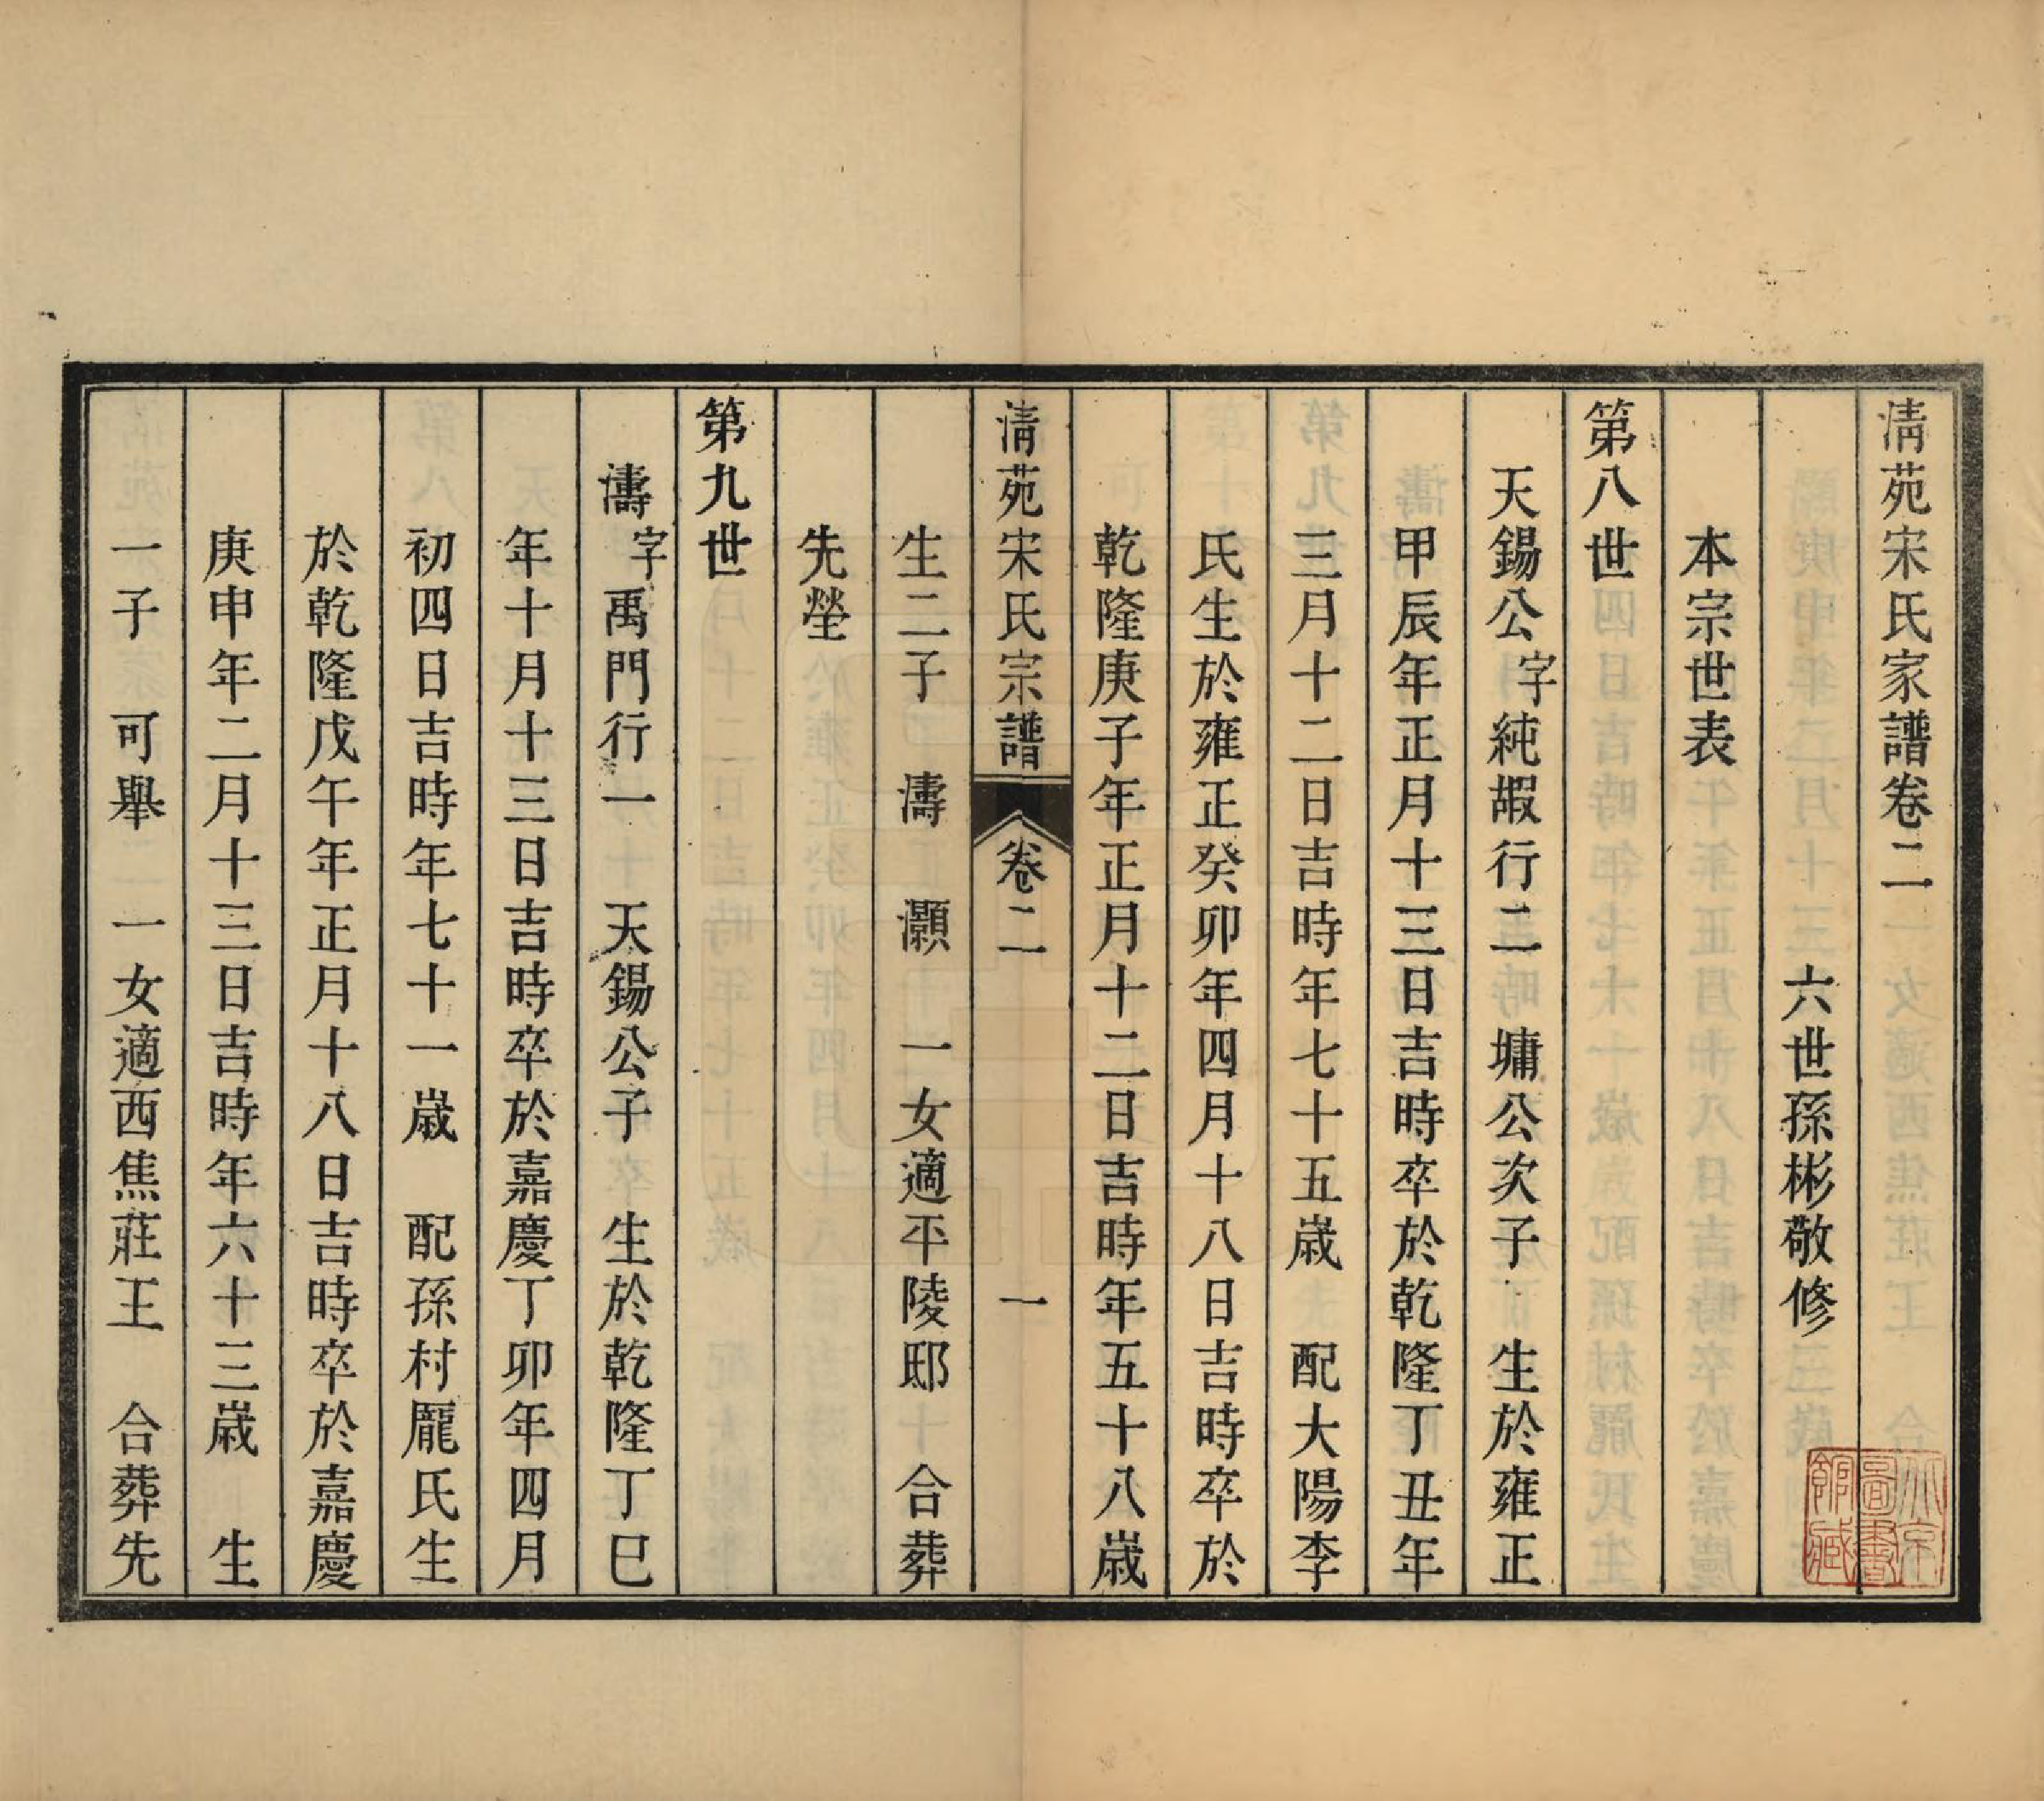 淸苑宋氏家譜卷二
六世孫彬敬修
本宗世表
第八世
天錫公字純嘏行二　墉公次子　生於雍正
甲辰年正月十三日吉時卒於乾隆丁丑年
三月十二日吉時年七十五歲　配大陽李
氏生於雍正癸卯年四月十八日吉時卒於
乾隆庚子年正月十二日吉時年五十八歲
淸苑宋氏宗譜　卷二　一
生二子　濤　灝　一女適平陵邸　合葬
先塋
第九世
濤字禹門行一　天錫公子　生於乾隆丁巳
年十月十三日吉時卒於嘉慶丁卯年四月
初四日吉時年七十一歲　配孫村龎氏生
於乾隆戊午年正月十八日吉時卒於嘉慶
庚申年二月十三日吉時年六十三歲　生
一子　可舉　一女適西焦莊王　合葬先
北京圖書館藏